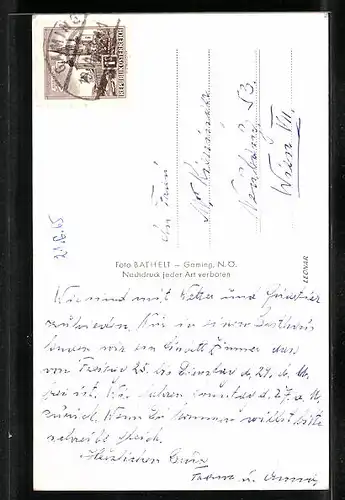 GAMING
REPUBLIK ÖSTERREICH
An Frau
Neubaug 53.
Wien VII.
21.6.65
Foto BATHELT — Gaming, N. Ö.
Nachdruck jeder Art verboten
LEONAR
Wir sind mit Wetter und Quartier
zufrieden. Nur in einem Gasthaus
ein Bett Zimmer das
von Freitag 25. bis Dienstag d. 29. d. M.
frei ist. Wir fahren Sonntag d. 27. d. M.
zurück. Wenn Du kommen willst bitte
schreibe gleich.
Herzlichen Gruß
u.